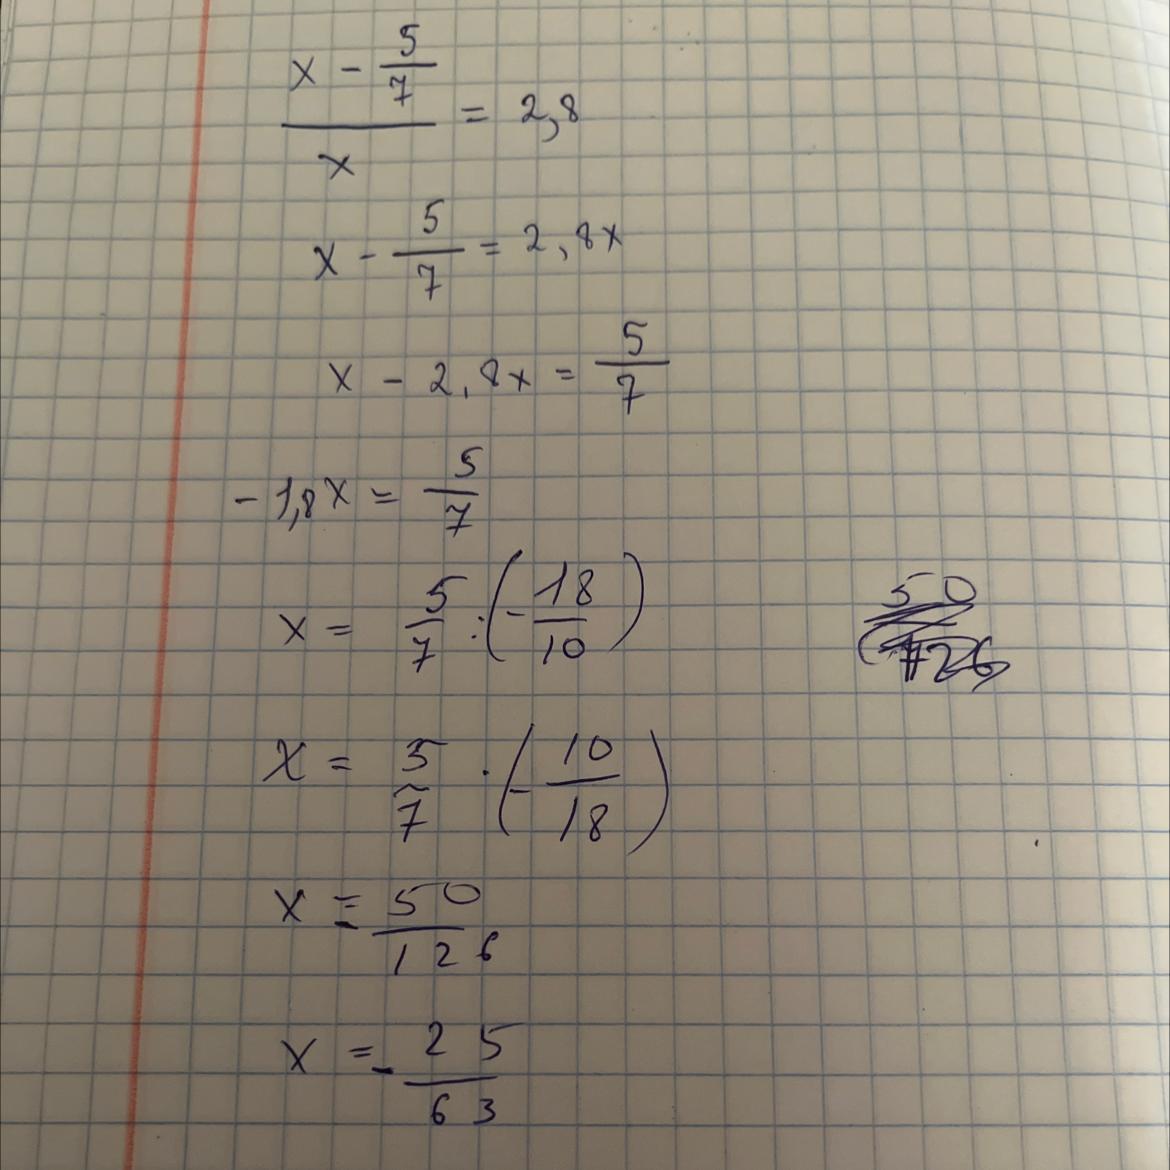 (x - 5/7)/x = 2,8
x - 5/7 = 2,8x
x - 2,8x = 5/7
-1,8x = 5/7
x = 5/7 : (-18/10)
x = 5/7 · (-10/18)
x = -50/126
x = -25/63